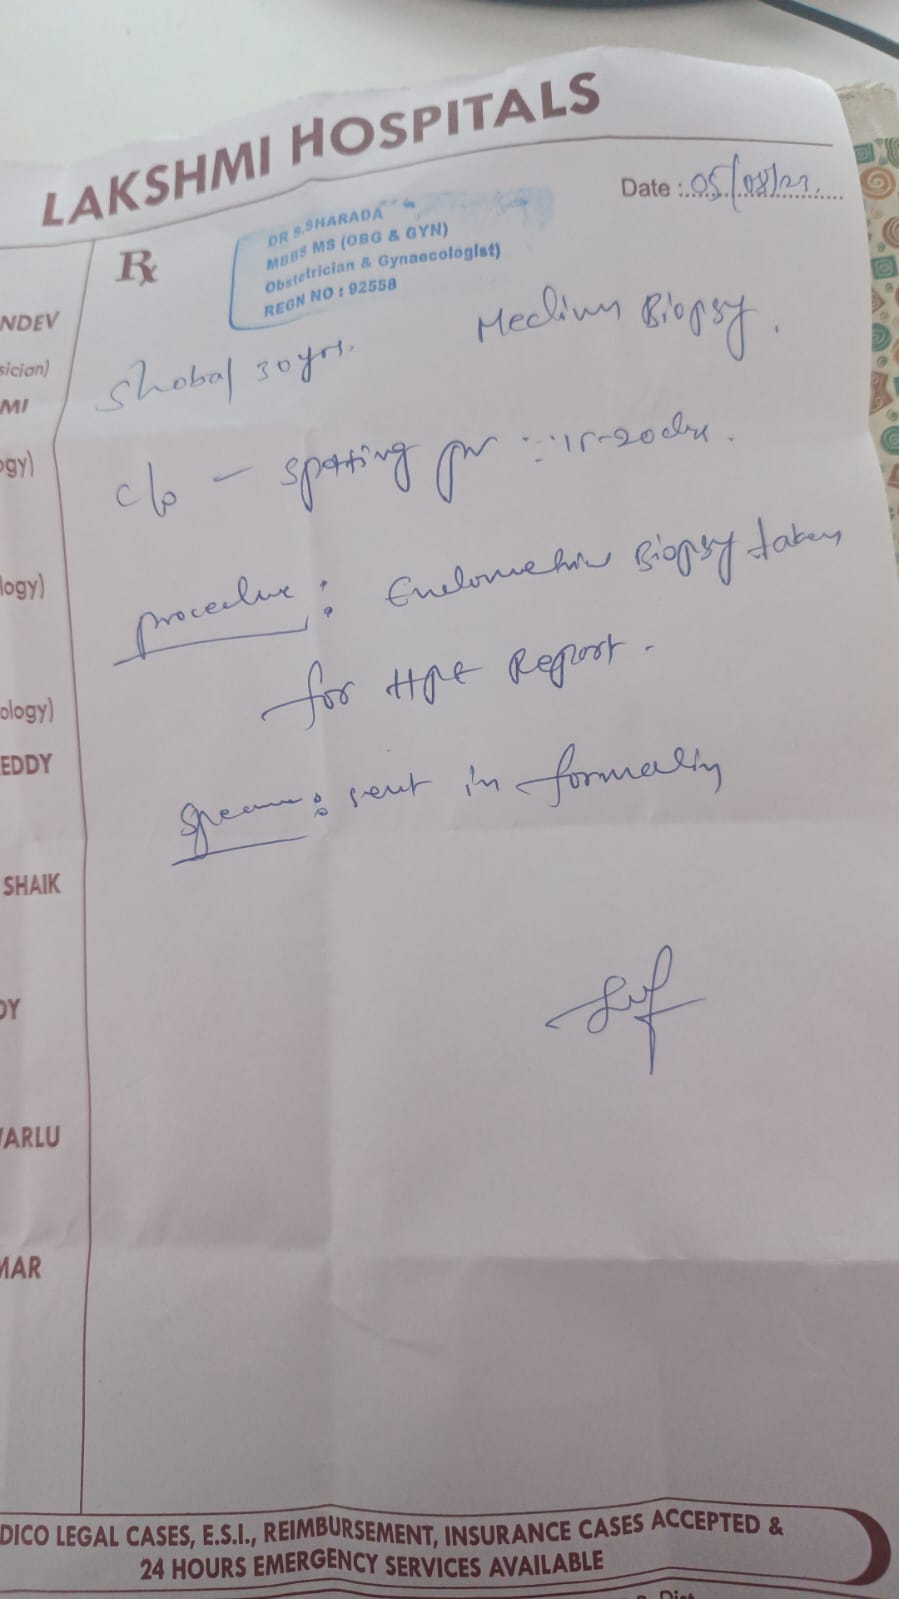 LAKSHMI HOSPITALS
Date : 05/08/23.
Rx
DR S.SHARADA
MBBS MS (OBG & GYN)
Obstetrician & Gynaecologist)
REGN NO : 92558
NDEV
sician)
MI
ogy)
logy)
ology)
EDDY
SHAIK
DY
VARLU
MAR
Medium Biopsy.
Shoba/ 30 yrs.
c/o - spotting 15-20
procedure : Endometrial Biopsy taken
for HPE Report.
: sent in formalin
DICO LEGAL CASES, E.S.I., REIMBURSEMENT, INSURANCE CASES ACCEPTED &
24 HOURS EMERGENCY SERVICES AVAILABLE